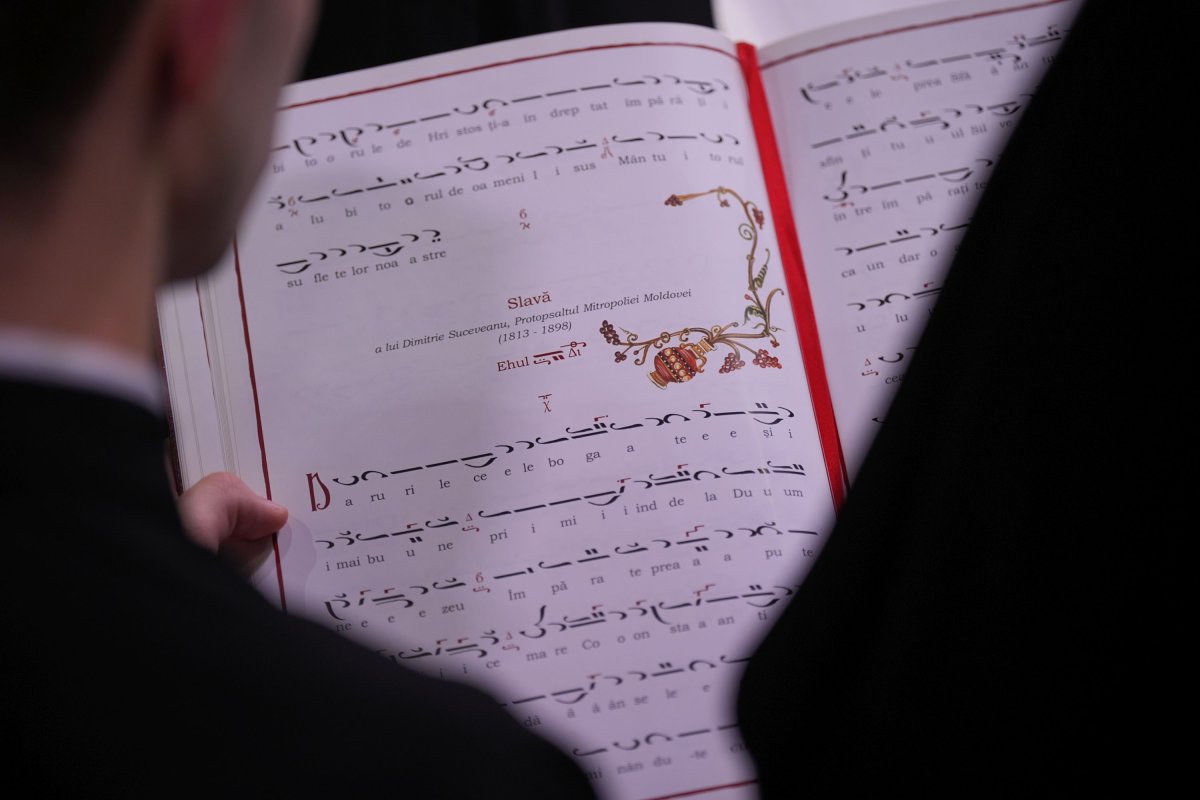 bi to o ru le de Hri stos ţi-a în drep tat îm pă ră ţi i
a lu bi to o rul de oa meni I i sus Mân tu i to rul
su fle te lor noa a stre
Slavă
a lui Dimitrie Suceveanu, Protopsaltul Mitropoliei Moldovei
(1813 - 1898)
Ehul
D a ru ri le ce e le bo ga a te e e şi i
i mai bu u ne pri i mi i i ind de la Du u um
ne e e e zeu Îm pă ra te prea a a pu te
i i ce ma re Co o on sta a an ti
dă ă â ân se le e
mi nân du -te
e e le prea
afin ţi tu u
în tre îm pă raţi
ca un dar o
u lu